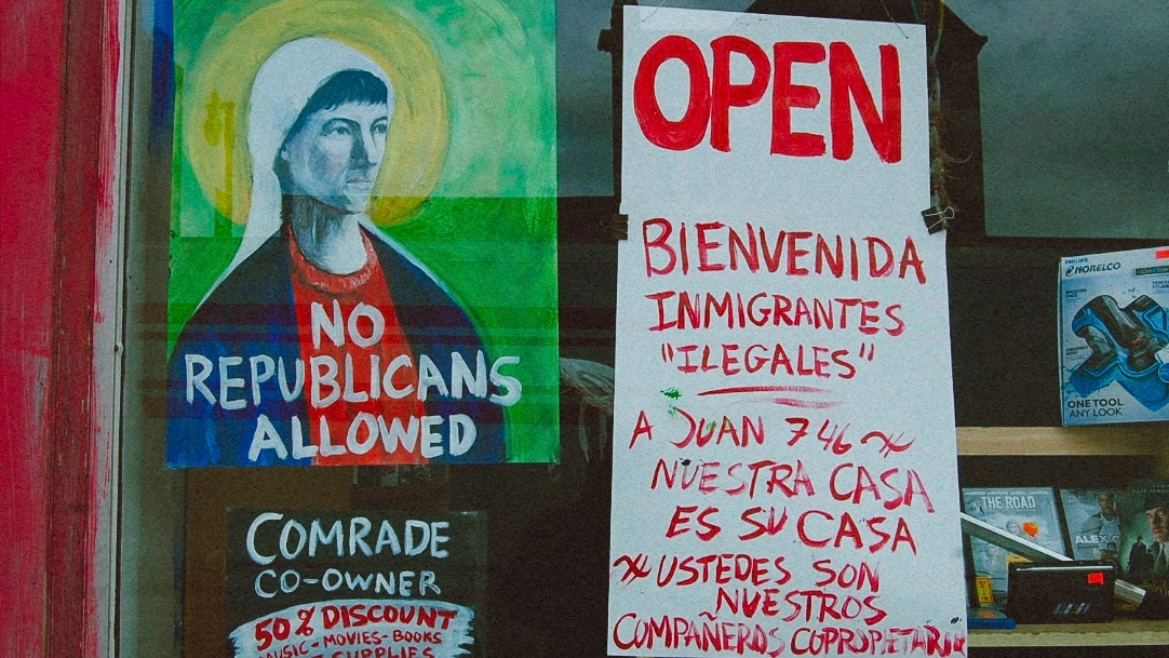 NO
REPUBLICANS
ALLOWED
COMRADE
CO-OWNER
50% DISCOUNT
MUSIC-MOVIES-BOOKS
SUPPLIES
OPEN
BIENVENIDA
INMIGRANTES
"ILEGALES"
A JUAN 746 ~
NUESTRA CASA
ES SU CASA
~ USTEDES SON
NUESTROS
COMPAÑEROS COPROPIETARIO
PHILIPS
NORELCO
ONE TOOL
ANY LOOK
THE ROAD
ALEX C